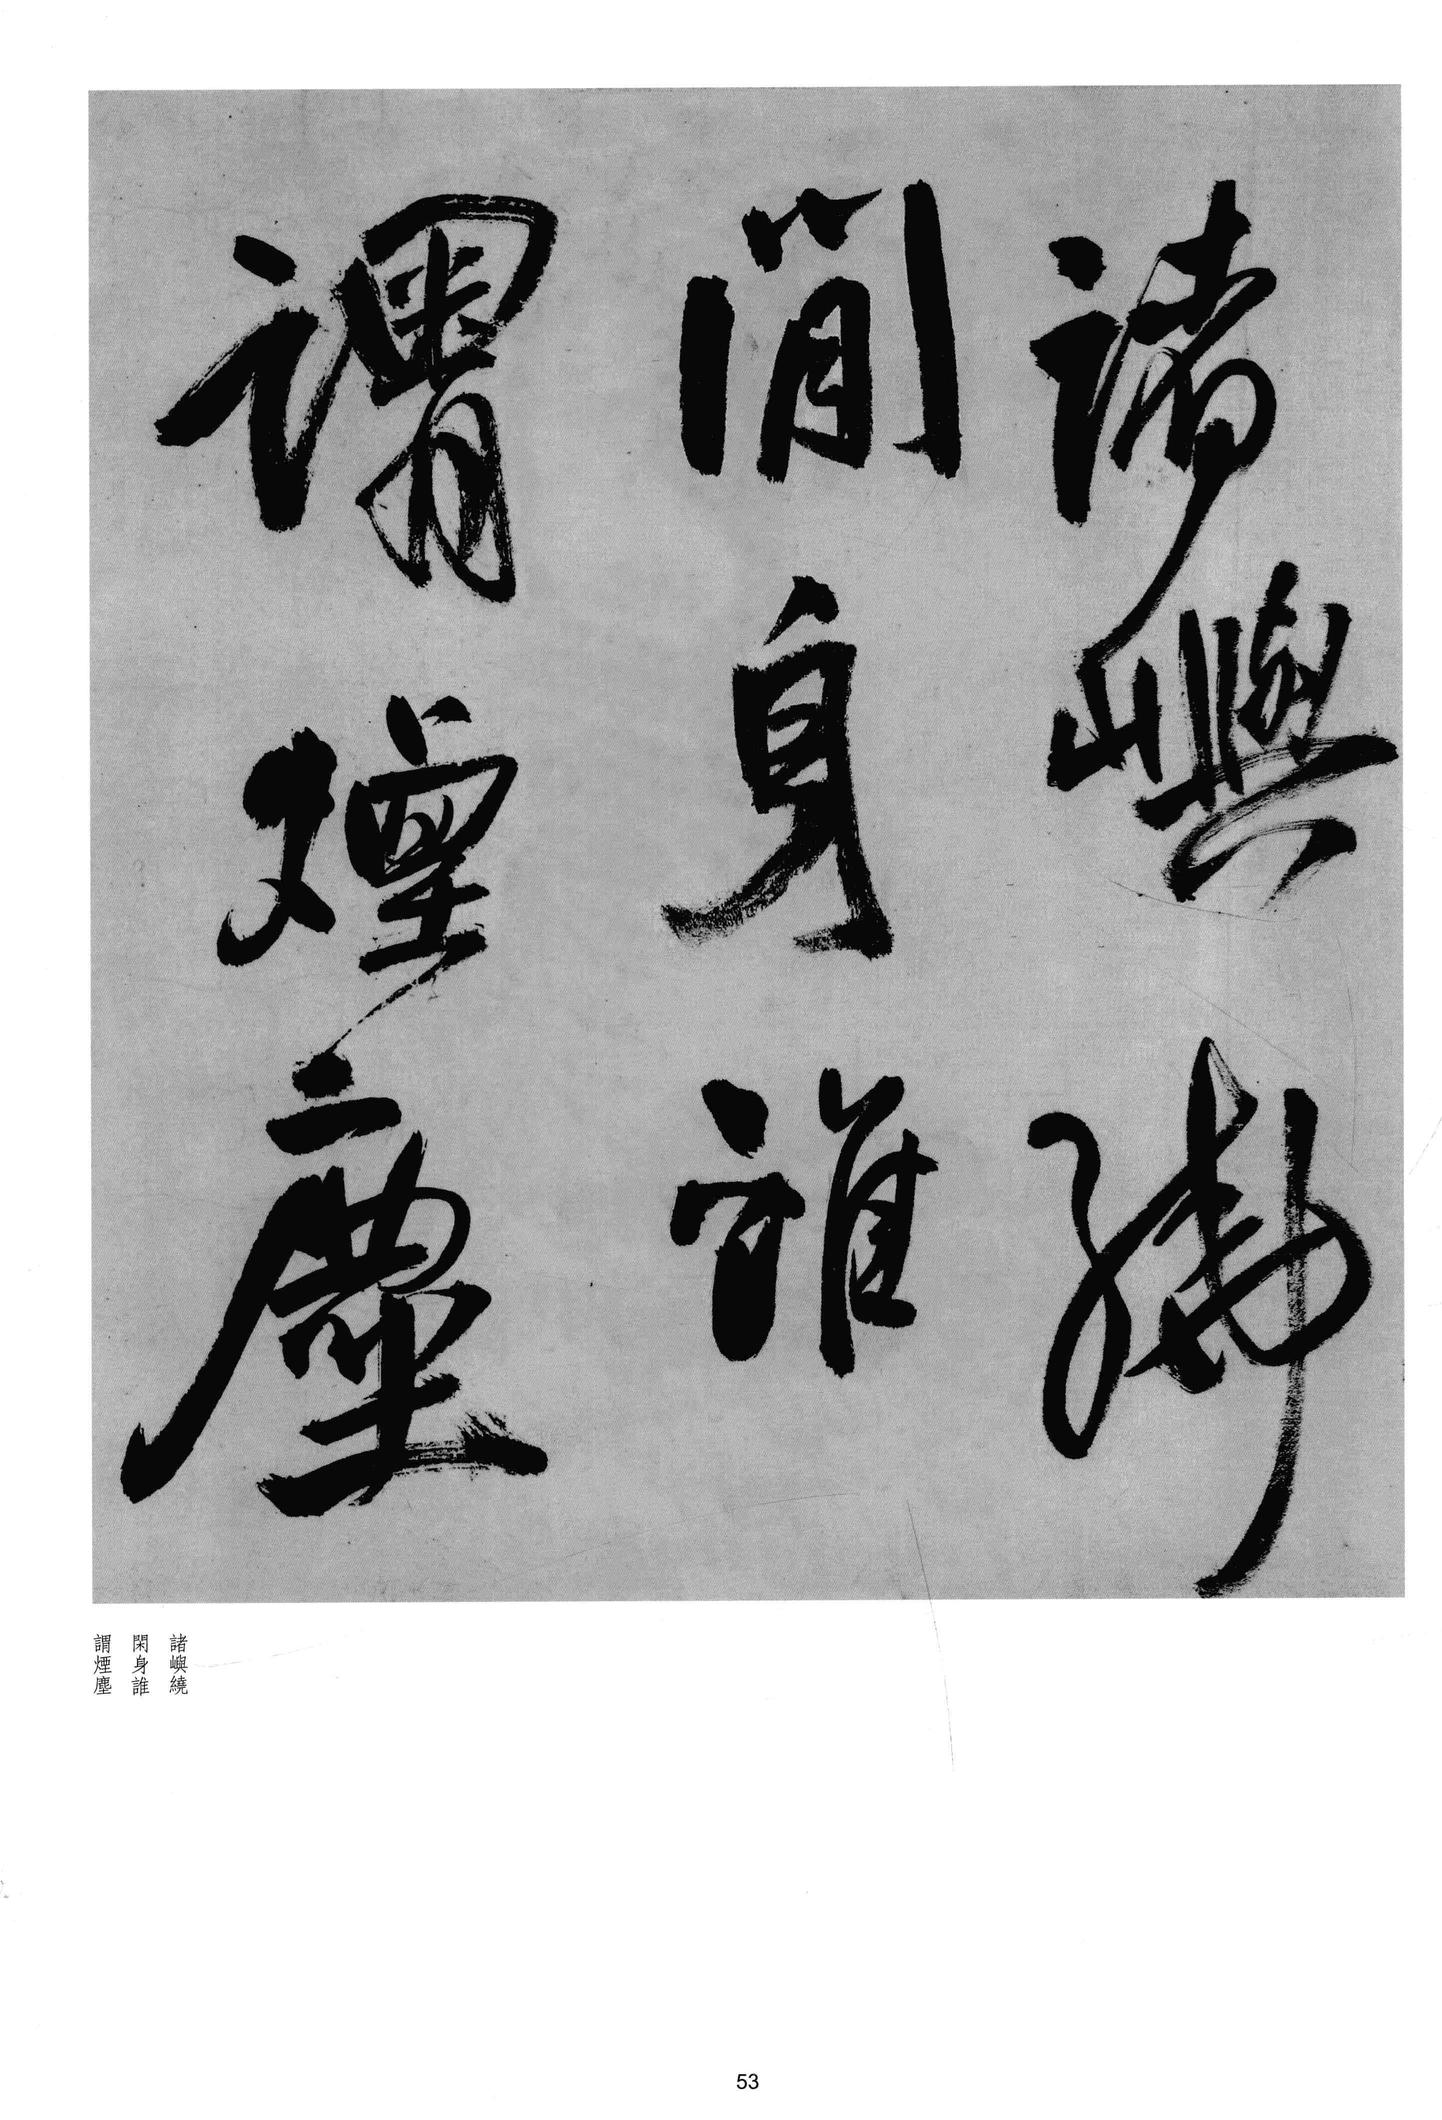 諸嶼繞
閒身誰
謂煙塵
諸嶼繞
閑身誰
謂煙塵
53